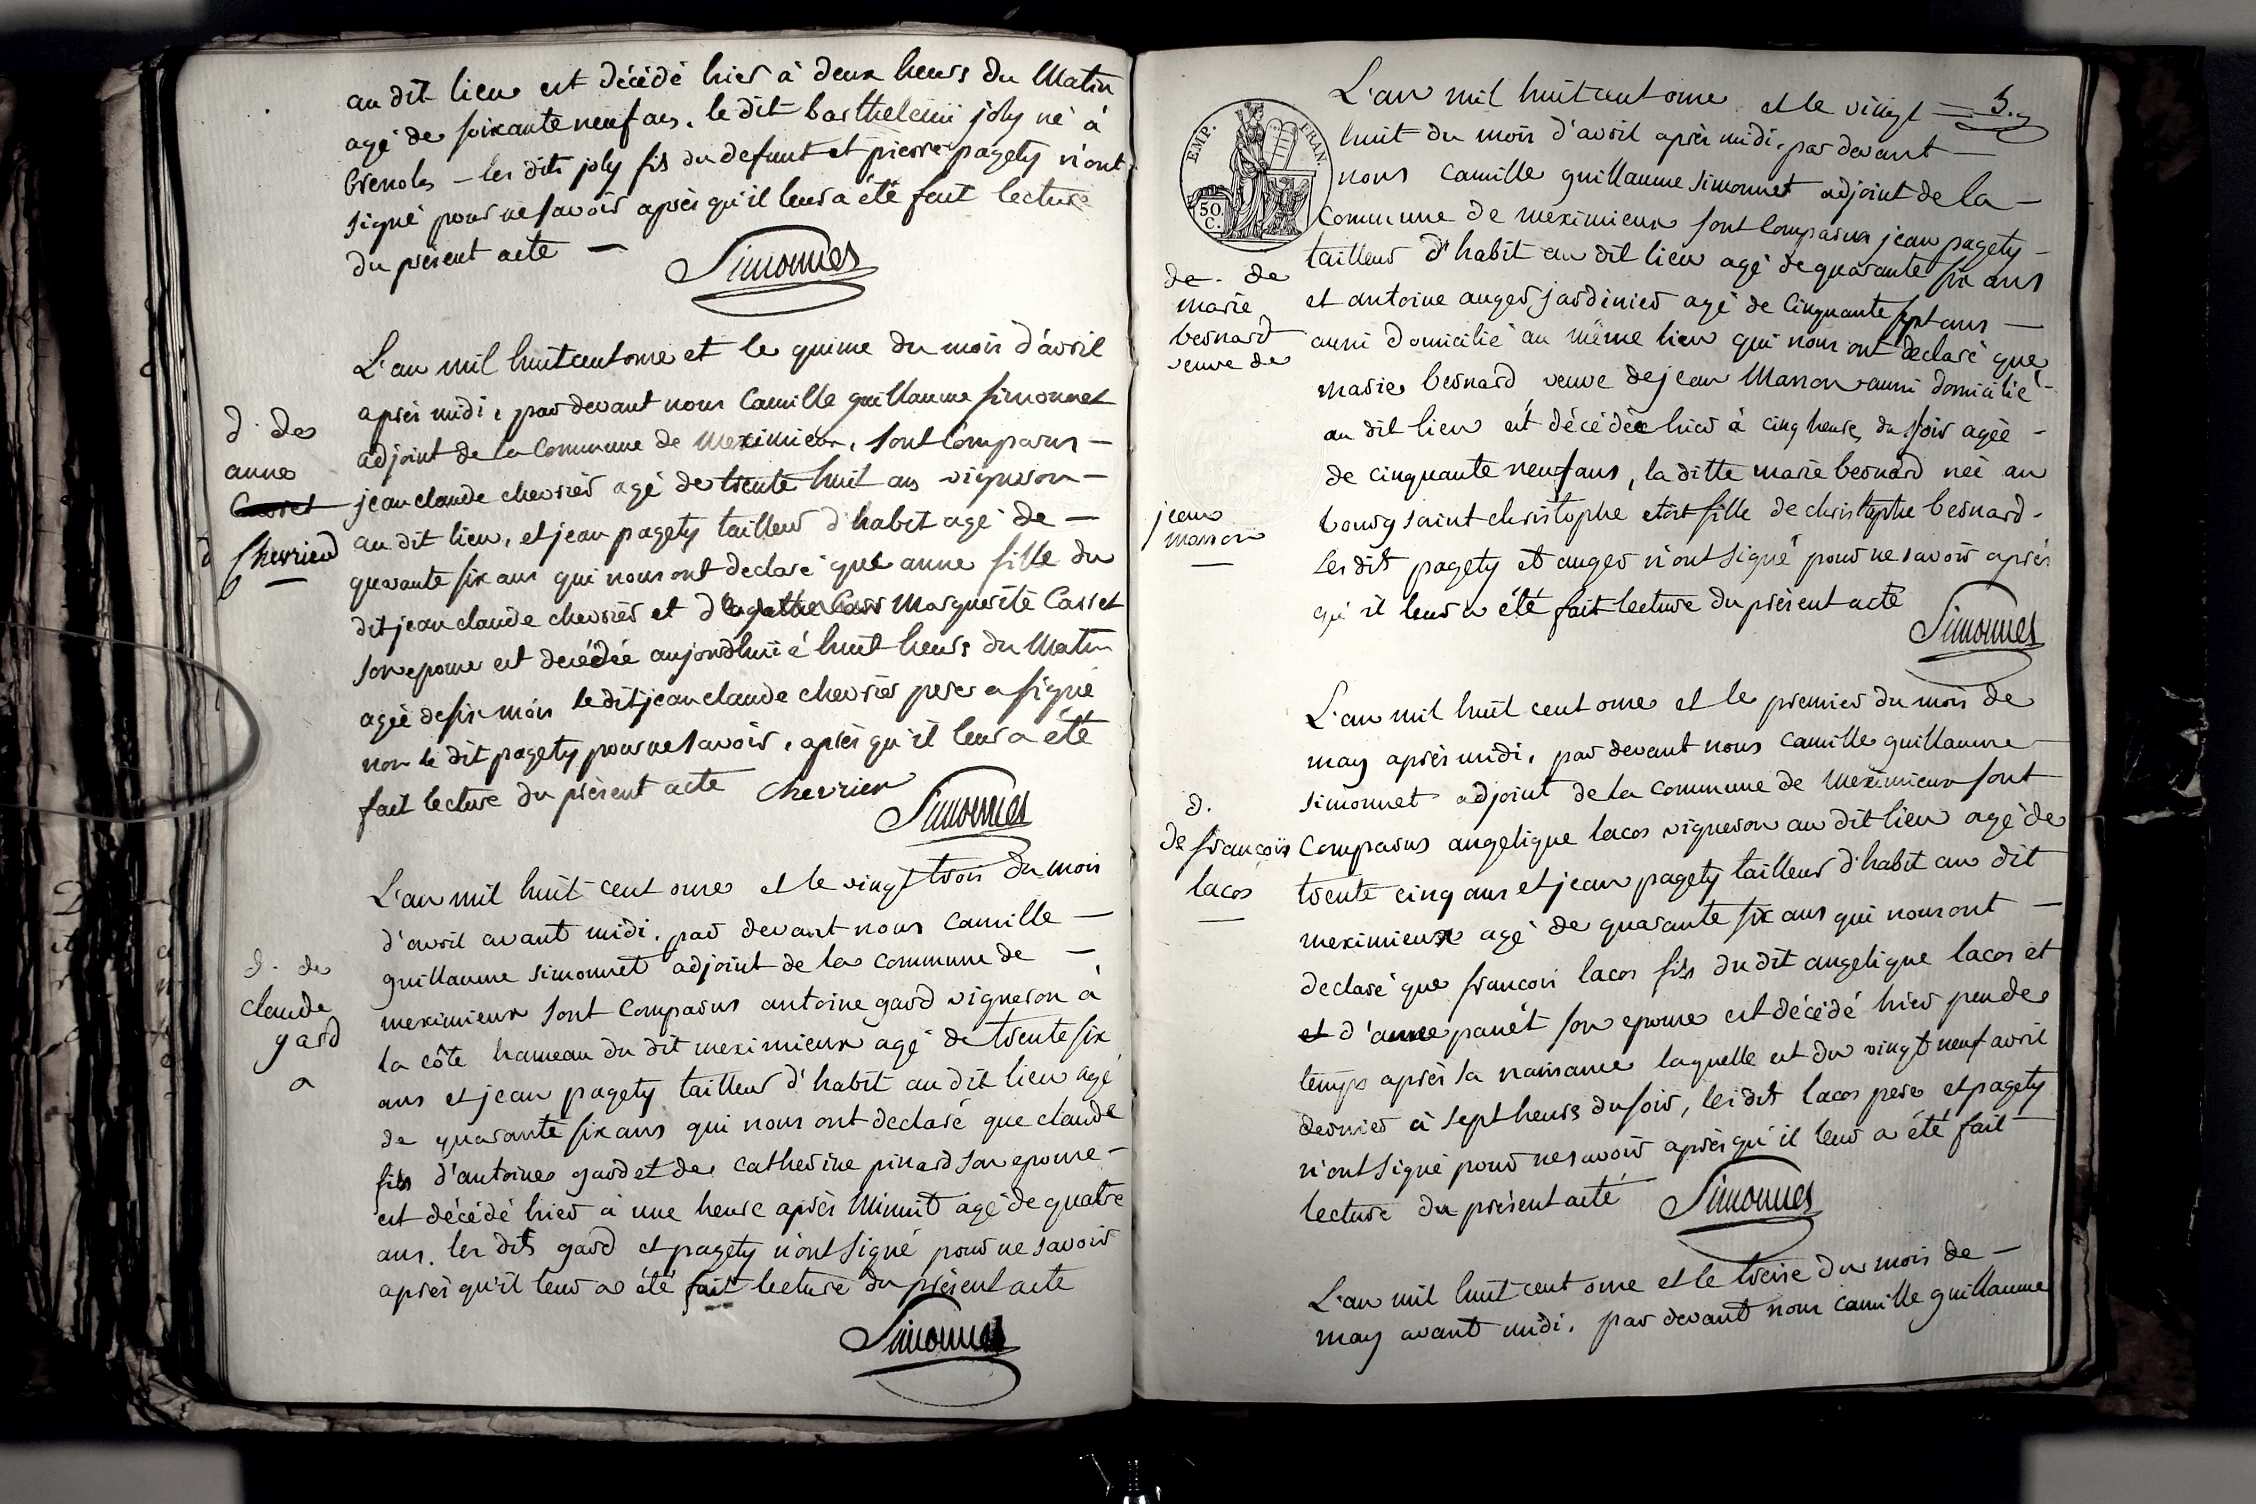 au dit lieu est décédé hier à deux heurs du Matin
agé de soixante neuf ans. le dit barthelemi joly né à
brenoles – les dits joly fils du defunt et pierre pagety n'ont
signé pour ne savoir après qu'il leur a été fait lecture
du présent acte —
Simonnet
d. de
anne
Chevrier
L'an mil huit cent onze et le quinze du mois d'avril
après midi, par devant nous Camille guillaume simonnet
adjoint de la Commune de Meximieux, sont Comparus –
jean claude chevrier agé de trente huit ans vigneron –
au dit lieu, et jean pagety tailleur d'habit agé de –
quarante six ans qui nous ont declaré que anne fille du
dit jean claude chevrier et d Marguerite Casset
son epouse est decédée aujourdhuit à huit heurs du Matin
agée de six mois le dit jean claude chevrier pere a signé
non le dit pagety pour ne savoir, après qu'il leur a été
fait lecture du présent acte Chevrier
Simonnet
d. de
claude
gard
a
L'an mil huit cent onze et le vingt trois du mois
d'avril avant midi, par devant nous Camille –
guillaume simonnet adjoint de la commune de –
meximieux sont Comparus antoine gard vigneron à
la côte hameau du dit meximieux agé de trente six
ans et jean pagety tailleur d'habit au dit lieu agé
de quarante six ans qui nous ont declaré que claude
fils d'antoine gard et de catherine pinard son epouse –
est décédé hier à une heure après Minuit agé de quatre
ans. les dits gard et pagety n'ont signé pour ne savoir
après qu'il leur a été fait lecture du présent acte
Simonnet
3.
EMP. FRAN.
50. C.
L'an mil huit cent onze et le vingt =
huit du mois d'avril après midi, par devant –
nous Camille guillaume simonnet adjoint de la –
Commune de meximieux sont Comparus jean pagety –
tailleur d'habit au dit lieu agé de quarante six ans
et antoine auger jardinier agé de Cinquante sept ans –
aussi domicilié au même lieu qui nous ont declaré que
marie bernard veuve de jean Manon aussi domicilié –
au dit lieu est décédée hier à cinq heures du soir agée –
de cinquante neuf ans, la ditte marie bernard née au
bourg saint christophe etoit fille de christophe bernard.
les dits pagety et auger n'ont signé pour ne savoir après
qu'il leur a été fait lecture du présent acte
Simonnet
de. de
marie
bernard
veuve de
jean
manon
L'an mil huit cent onze et le premier du mois de
may après midi, par devant nous Camille guillaume
simonnet adjoint de la Commune de Meximieux sont
Comparus angelique lacos vigneron au dit lieu agé de
trente cinq ans et jean pagety tailleur d'habit au dit
meximieux agé de quarante six ans qui nous ont –
declaré que francois lacos fils du dit angelique lacos et
et d'anne panét son epouse est décédé hier peu de
temps après sa naissance laquelle est du vingt neuf avril
dernier à sept heurs du soir, les dits lacos pere et pagety
n'ont signé pour ne savoir après qu'il leur a été fait –
lecture du présent acté
Simonnet
d.
de francois
lacos
L'an mil huit cent onze et le treise du mois de –
may avant midi, par devant nous Camille guillaume